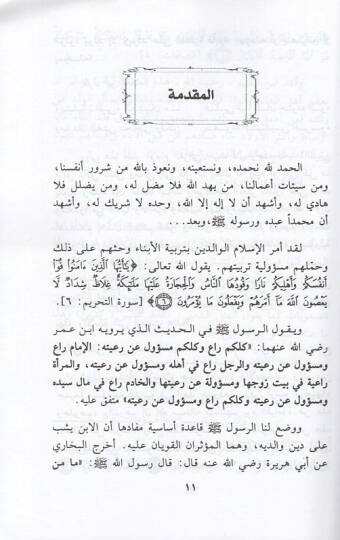 المقدمة
الحمد لله نحمده، ونستعينه، ونعوذ بالله من شرور أنفسنا،
ومن سيئات أعمالنا، من يهد الله فلا مضل له، ومن يضلل فلا
هادي له، وأشهد أن لا إله إلا الله، وحده لا شريك له، وأشهد
أن محمداً عبده ورسوله ﷺ،وبعد...
لقد أمر الإسلام الوالدين بتربية الأبناء وحثهم على ذلك
وحمّلهم مسؤولية تربيتهم. يقول الله تعالى: ﴿يَٰٓأَيُّهَا ٱلَّذِينَ ءَامَنُوا۟ قُوٓا۟
أَنفُسَكُمْ وَأَهْلِيكُمْ نَارًا وَقُودُهَا ٱلنَّاسُ وَٱلْحِجَارَةُ عَلَيْهَا مَلَٰٓئِكَةٌ غِلَاظٌ شِدَادٌ لَّا
يَعْصُونَ ٱللَّهَ مَآ أَمَرَهُمْ وَيَفْعَلُونَ مَا يُؤْمَرُونَ ۝٦﴾ [سورة التحريم: ٦].
ويقول الرسول ﷺ في الحديث الذي يرويه ابن عمر
رضي الله عنهما: «كلكم راع وكلكم مسؤول عن رعيته: الإمام راع
ومسؤول عن رعيته والرجل راع في أهله ومسؤول عن رعيته، والمرأة
راعية في بيت زوجها ومسؤولة عن رعيتها والخادم راع في مال سيده
ومسؤول عن رعيته وكلكم راع ومسؤول عن رعيته» متفق عليه.
ووضع لنا الرسول ﷺ قاعدة أساسية مفادها أن الابن يشب
على دين والديه، وهما المؤثران القويان عليه. أخرج البخاري
عن أبي هريرة رضي الله عنه قال: قال رسول الله ﷺ: «ما من
١١